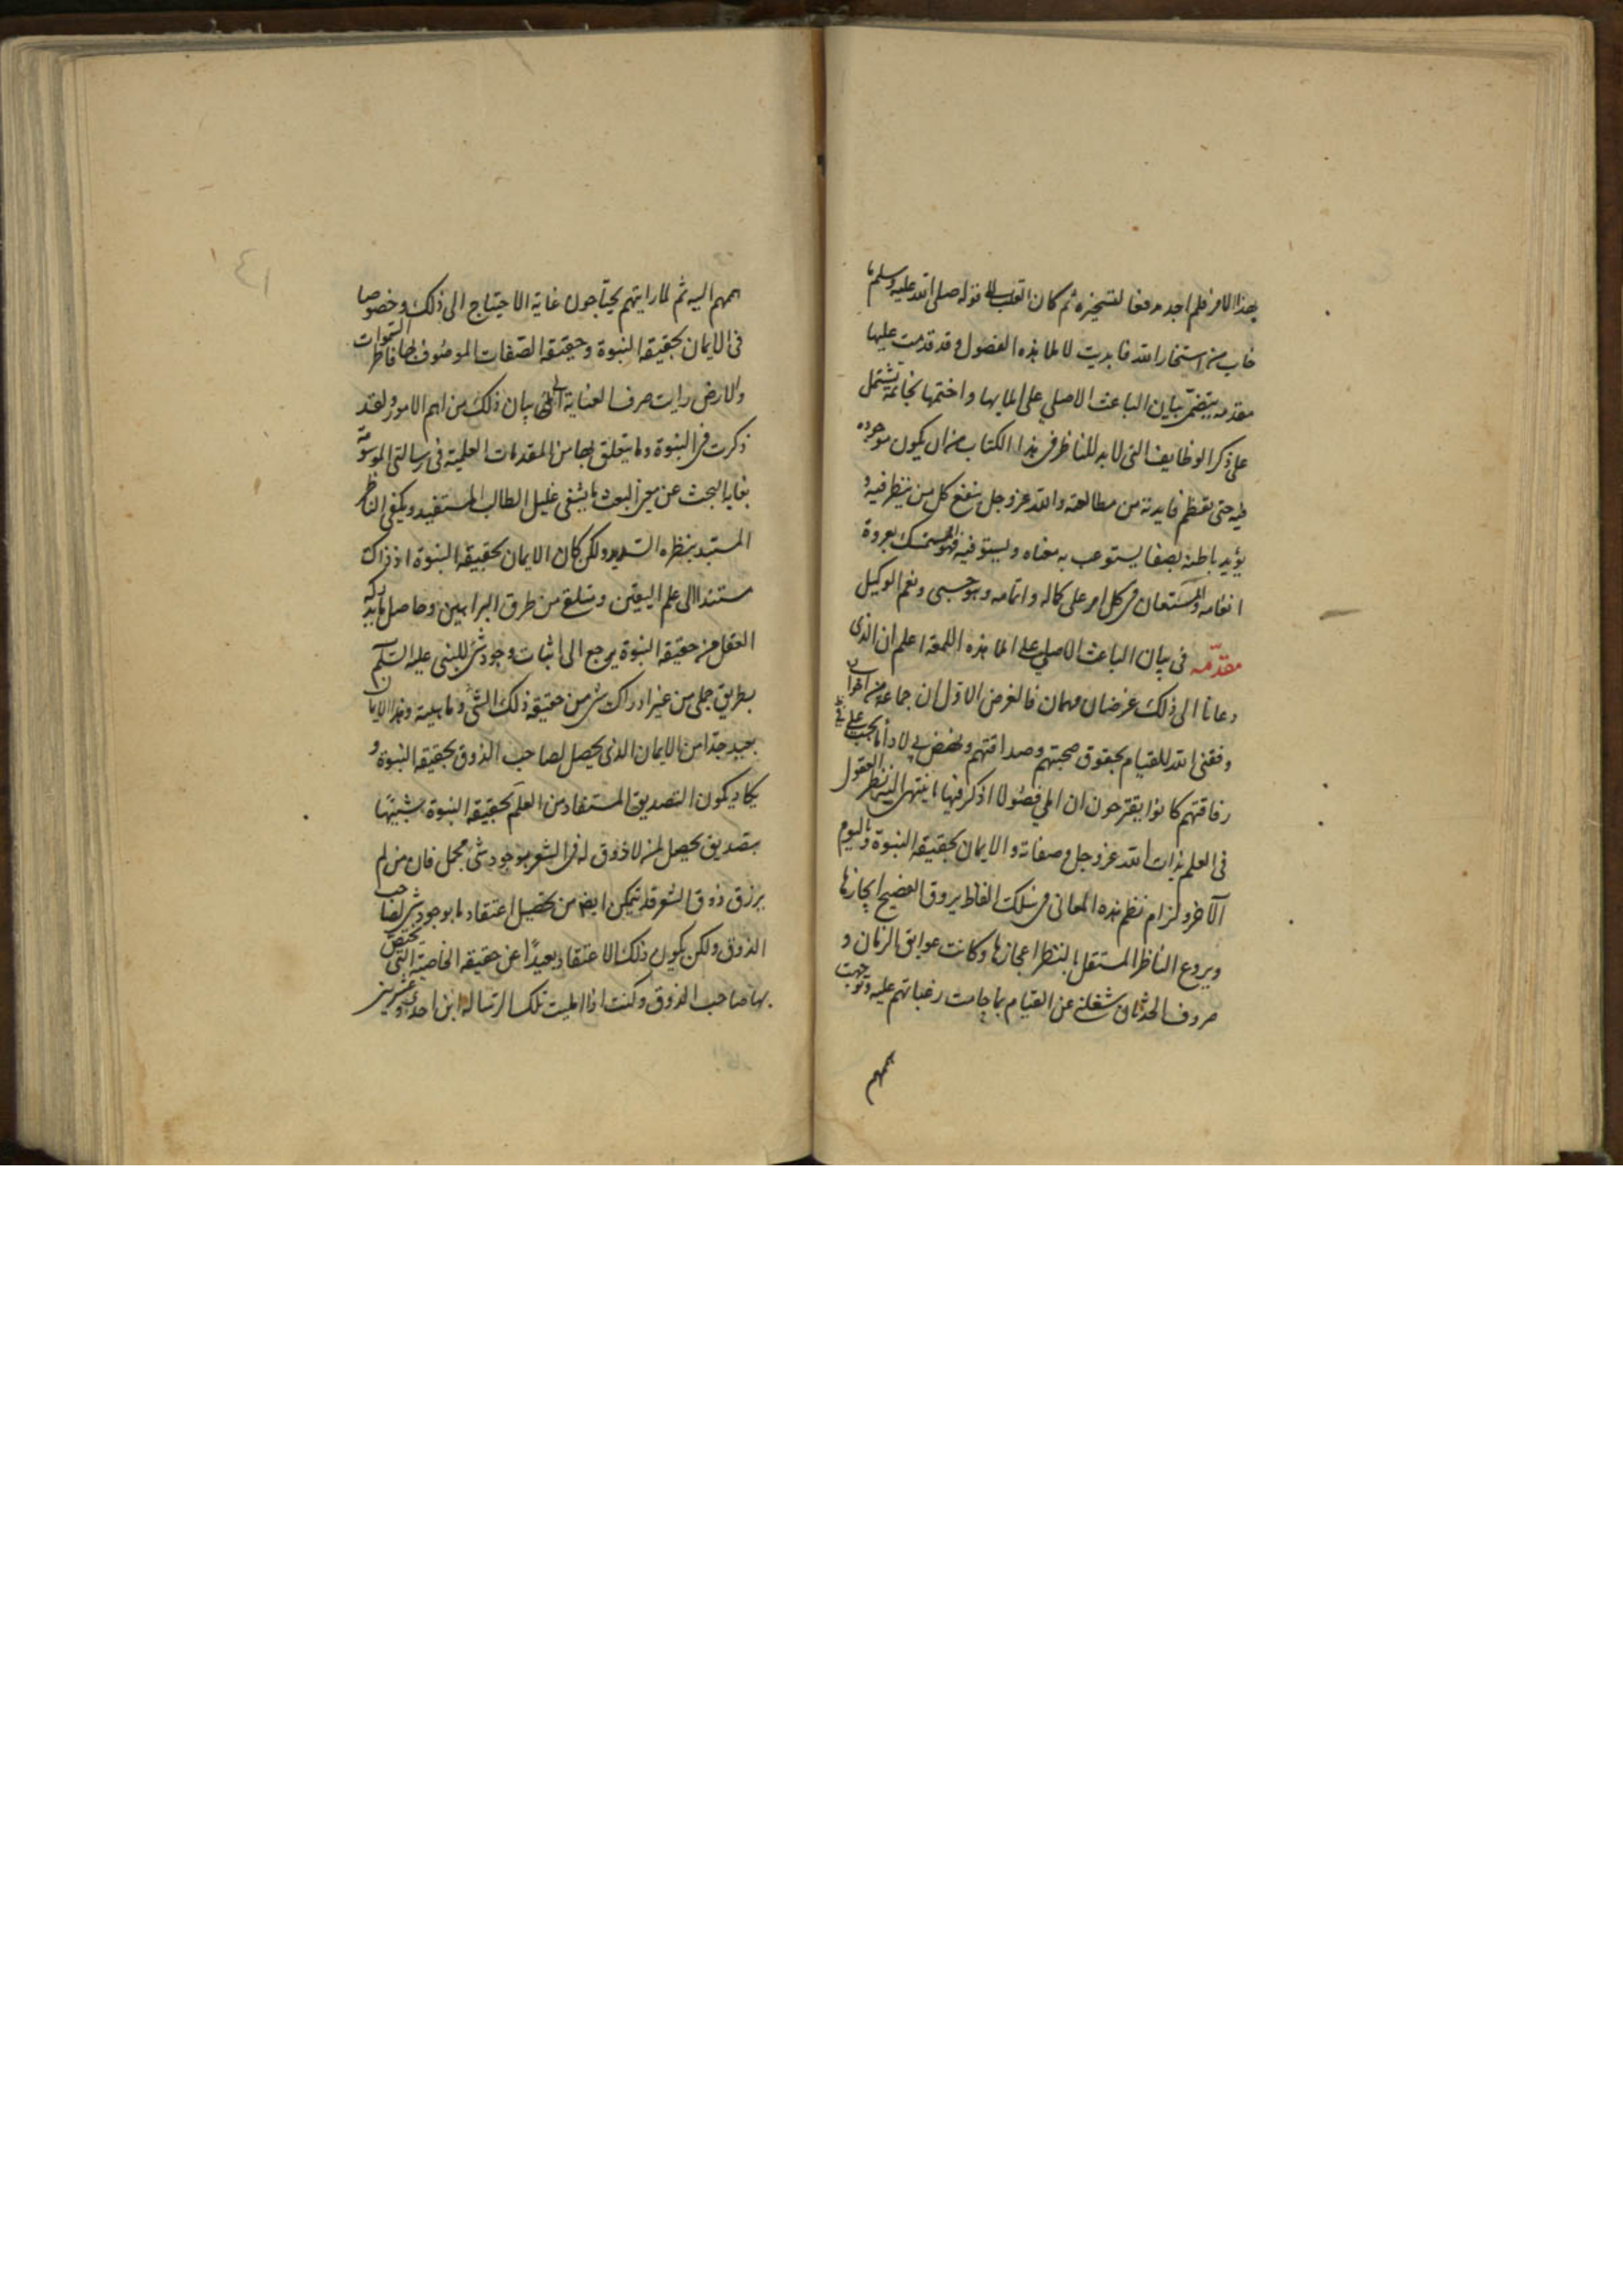 بهذا الامر فلم اجد مدفعا لتسخيره ثم كان اتقلب لله قوله صلى الله عليه وسلم ما
خاب من استخار الله فابديت لاملا هذه الفصول وقد قدمت عليها
مقدمه يتضمن بيان الباعث الاصلي على املايها واختمها بخاتمة تشتمل
على ذكر الوظايف التي لابد للناظر في هذا الكتاب من ان يكون موجوده
فيه حتى تعظم فايدته من مطالعته والله عز وجل ينفع كل من ينظر فيه و
يؤيد باطنه بصفا يستوعب به معناه ويستوفيه فهو المستمسك بعروة
انعامه والمستعان في كل امر على كماله واتمامه وهو حسبي ونعم الوكيل
مقدّمه في بيان الباعث الاصلي على املا هذه اللمعة اعلم ان الذي
دعانا الى ذلك غرضان مهمان فالغرض الاول ان جماعة من اخواني
وفقني الله للقيام بحقوق صحبتهم وصداقتهم ونهض بي لاداء ما يجب علي في
رفاقتهم كانوا يقترحون ان املي فصولا اذكر فيها ما ينتهي اليه نظر العقول
في العلم بذات الله عز وجل وصفاته والايمان بحقيقة النبوة وباليوم
الآخر ولزام نظم هذه المعاني في سلك الفاظ يروق الفصيح ايجازها
ويروع الناظر المستقل بالنظر اعجازها وكانت عوايق الزمان و
صروف الحدثان شغلني عن القيام بما حامت رغباتهم عليه وتوجهت
هممهم
هممهم اليه ثم لما رايتهم يحتاجون غاية الاحتياج الى ذلك وخصوصا
في الايمان بحقيقة النبوة وحقيقة الصفات الموصوف بها فاطر السموات
والارض رايت صرف العناية الى بيان ذلك من اهم الامور ولقد
ذكرت في النبوة وما يتعلق بها من المقدمات العلمية في رسالتي الموسومة
بغاية البحث عن معنى البعث ما يشفي غليل الطالب المستفيد ويكفي الناظر
المستبد بنظره السديد ولكن كان الايمان بحقيقة النبوة اذ ذاك
مستندا الى علم اليقين ومتلقى من طرق البراهين وحاصل ما يدركه
العقل من حقيقة النبوة يرجع الى اثبات وجود شئ للنبي عليه السلام
بطريق جملي من غير ادراك شئ من حقيقة ذلك الشئ وماهيته وهذا الايمان
بعيد جدا من الايمان الذي يحصل لصاحب الذوق بحقيقة النبوة و
يكاد يكون التصديق المستفاد من العلم بحقيقة النبوة شبيهًا
بتصديق يحصل لمن لا ذوق له في الشعر بوجود شئ مجمل فان من لم
يرزق ذوق الشعر قد يتمكن ايضا من تحصيل اعتقاد ما بوجود شئ لصاحب
الذوق ولكن يكون ذلك الاعتقاد بعيدًا عن حقيقة الخاصية التي يختص
بها صاحب الذوق وكنت اذ امليت تلك الرسالة ابن احدى وعشرين